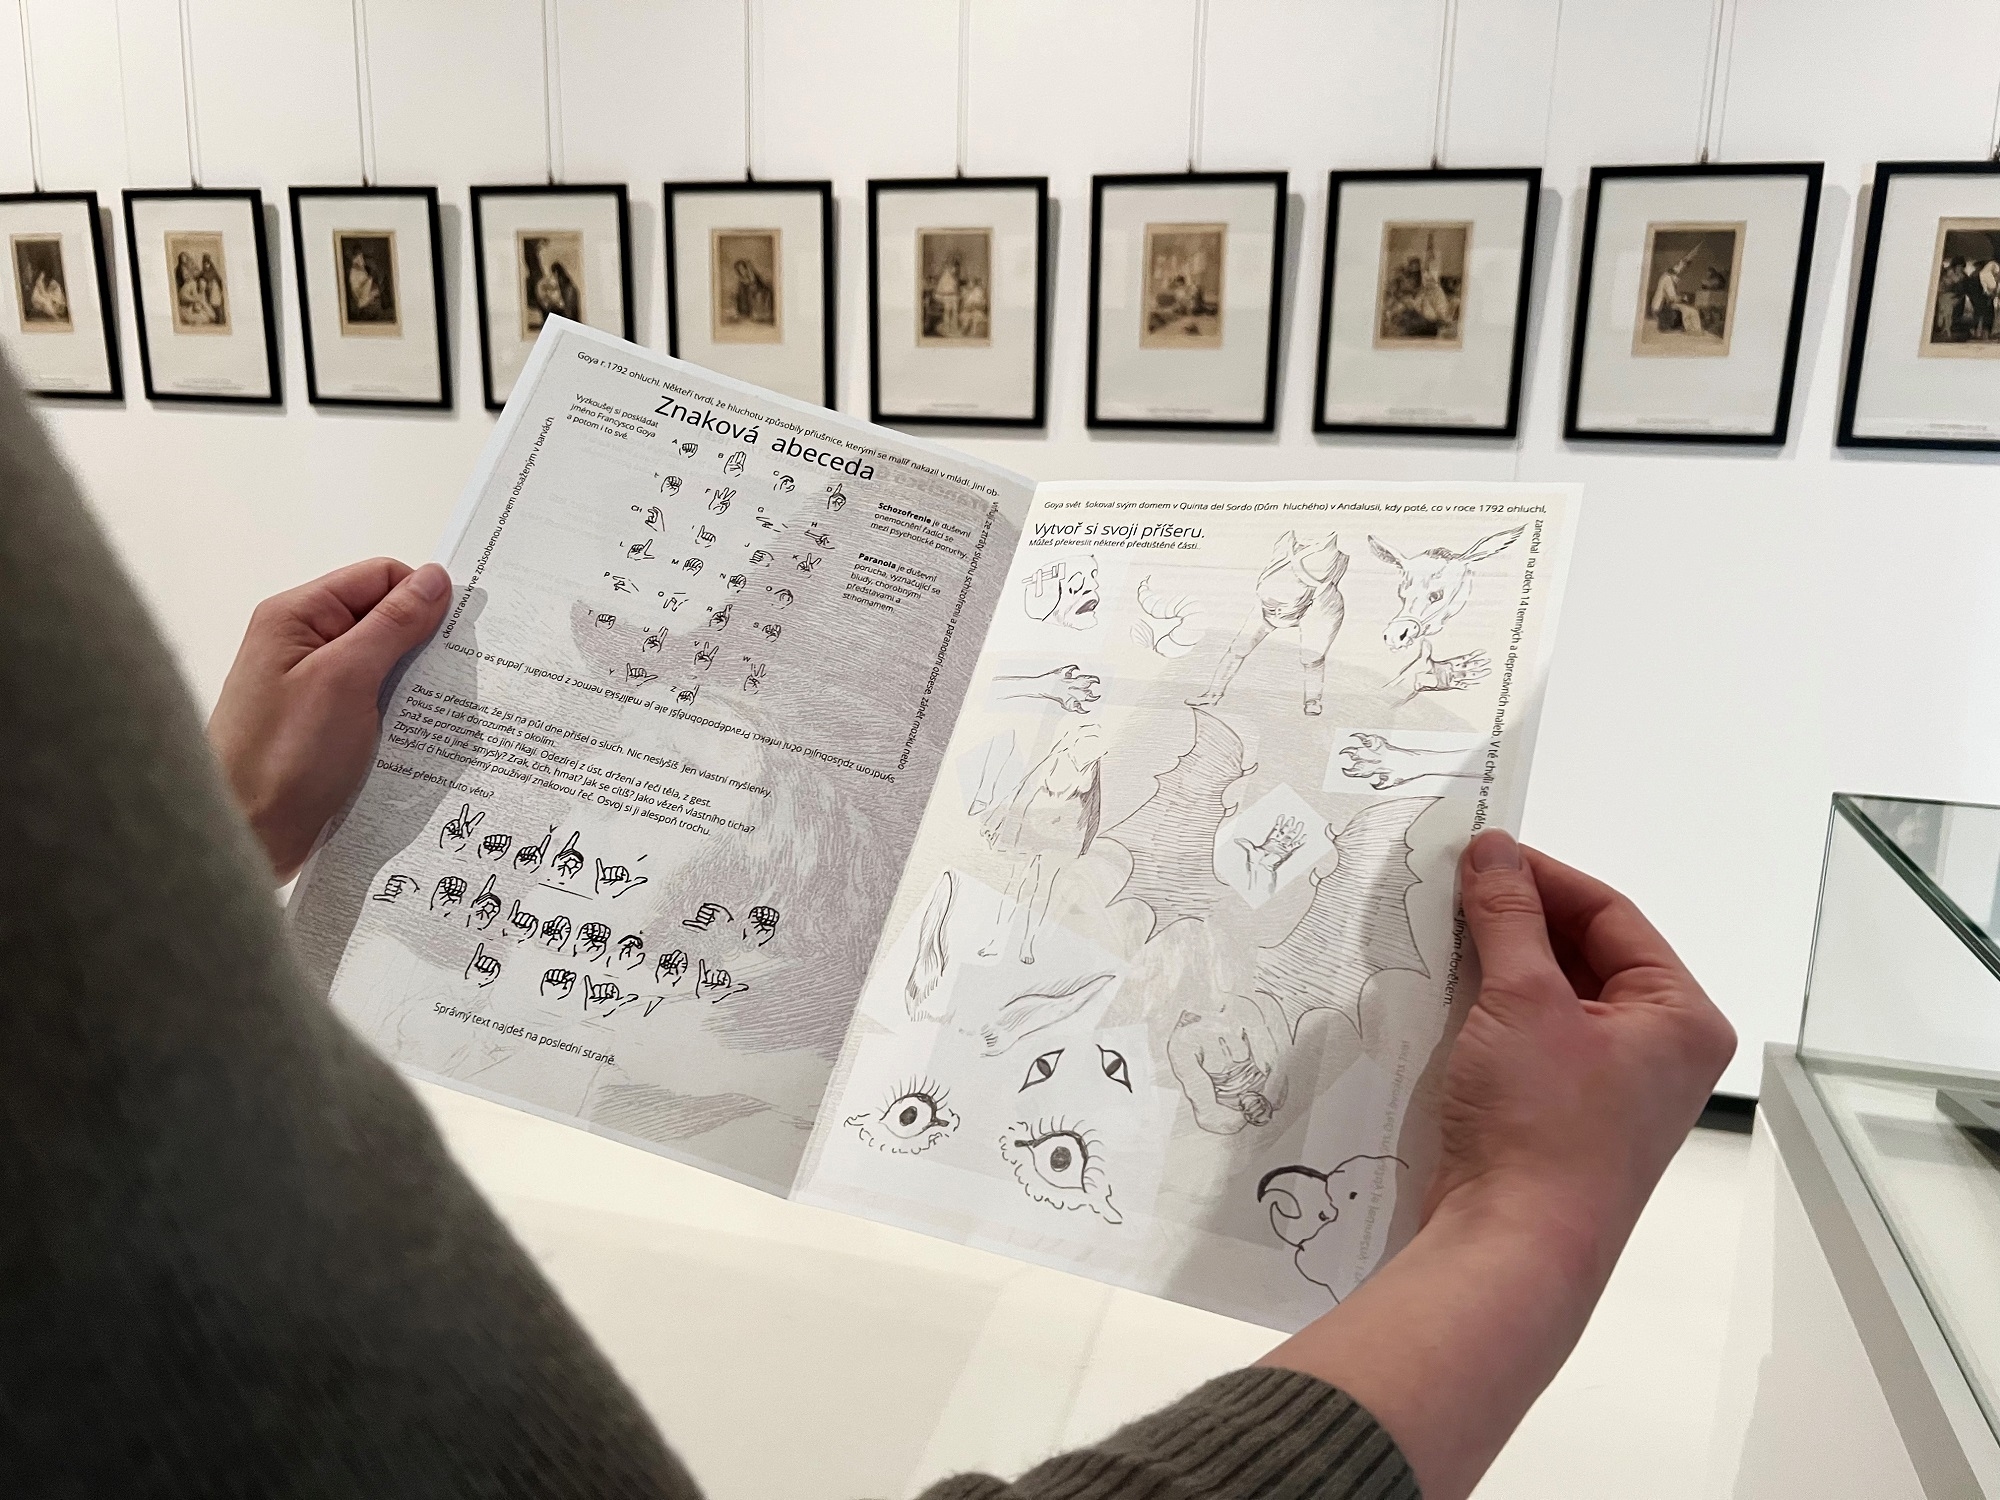 Goya r.1792 ohluchl. Někteří tvrdí, že hluchotu způsobily příušnice, kterými se malíř nakazil v mládí. Jiní ob-
viňují ze ztráty sluchu schizofrenii a paranoidní obsese, zánět mozku nebo
syndrom způsobující oční infekci. Pravděpodobnější ale je malířská nemoc z povolání. Jedná se o chroni-
ckou otravu krve způsobenou olovem obsaženým v barvách.
Vyzkoušej si poskládat
jméno Francysco Goya
a potom i to své.
Znaková abeceda
A
B
C
D
E
F
G
H
CH
I
J
K
L
M
N
O
P
Q
R
S
T
U
V
W
Y
Z
Schozofrenie je duševní
onemocnění řadící se
mezi psychotické poruchy.
Paranoia je duševní
porucha, vyznačující se
bludy, chorobnými
představami a
stihomamem.
Zkus si představit, že jsi na půl dne přišel o sluch. Nic neslyšíš. Jen vlastní myšlenky.
Pokus se i tak dorozumět s okolím.
Snaž se porozumět, co jiní říkají. Odezírej z úst, držení a řeči těla, z gest.
Zbystřily se ti jiné smysly? Zrak, čich, hmat? Jak se cítíš? Jako vězeň vlastního ticha?
Neslyšící či hluchoněmý používají znakovou řeč. Osvoj si ji alespoň trochu.
Dokážeš přeložit tuto větu?
Správný text najdeš na poslední straně.
Goya svět šokoval svým domem v Quinta del Sordo (Dům hluchého) v Andalusii, kdy poté, co v roce 1792 ohluchl,
zanechal na zdech 14 temných a depresivních maleb. V té chvíli se vědělo,
jiným člověkem.
Vytvoř si svoji příšeru.
Můžeš překreslit některé předtištěné části.